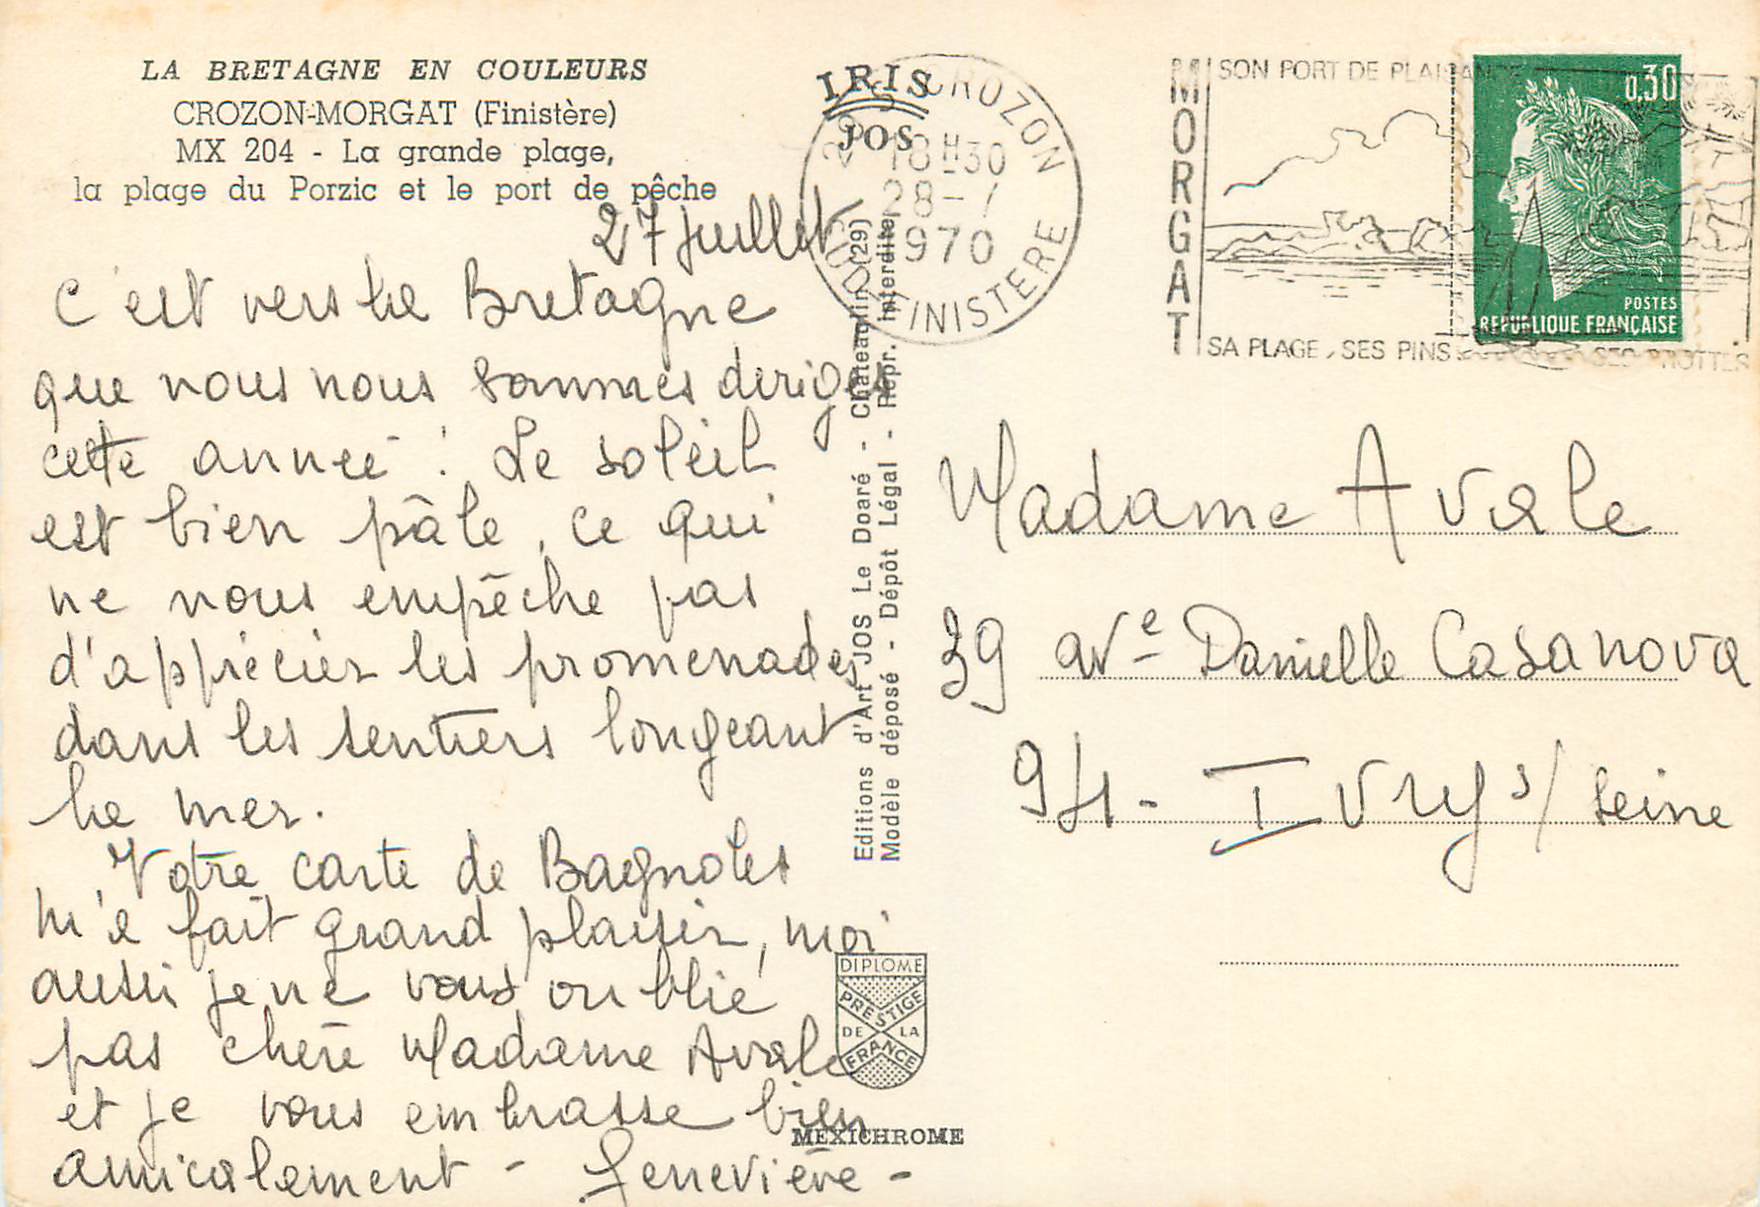 LA BRETAGNE EN COULEURS
CROZON-MORGAT (Finistère)
MX 204 - La grande plage,
la plage du Porzic et le port de pêche
27 juillet
C'est vers la Bretagne
que nous nous sommes dirigés
cette année ! Le soleil
est bien pâle, ce qui
ne nous empêche pas
d'apprécier les promenades
dans les sentiers longeant
la mer.
Votre carte de Bagnoles
m'a fait grand plaisir, moi
aussi je ne vous oublie
pas chère Madame Avale
et je vous embrasse bien
amicalement - Geneviève -
IRIS
JOS
Editions d'Art JOS Le Doaré - Châteaulin (29)
Modèle déposé - Dépôt Légal - Repr. interdite
DIPLOME
PRESTIGE
DE LA
FRANCE
MEXICHROME
CROZON
18H30
28-7
1970
SUD FINISTERE
MORGAT
SON PORT DE PLAISANCE
SA PLAGE, SES PINS
SES GROTTES
0,30
POSTES
REPUBLIQUE FRANÇAISE
Madame Avale
39 Ave Danielle Casanova
94 - Ivry s/ Seine